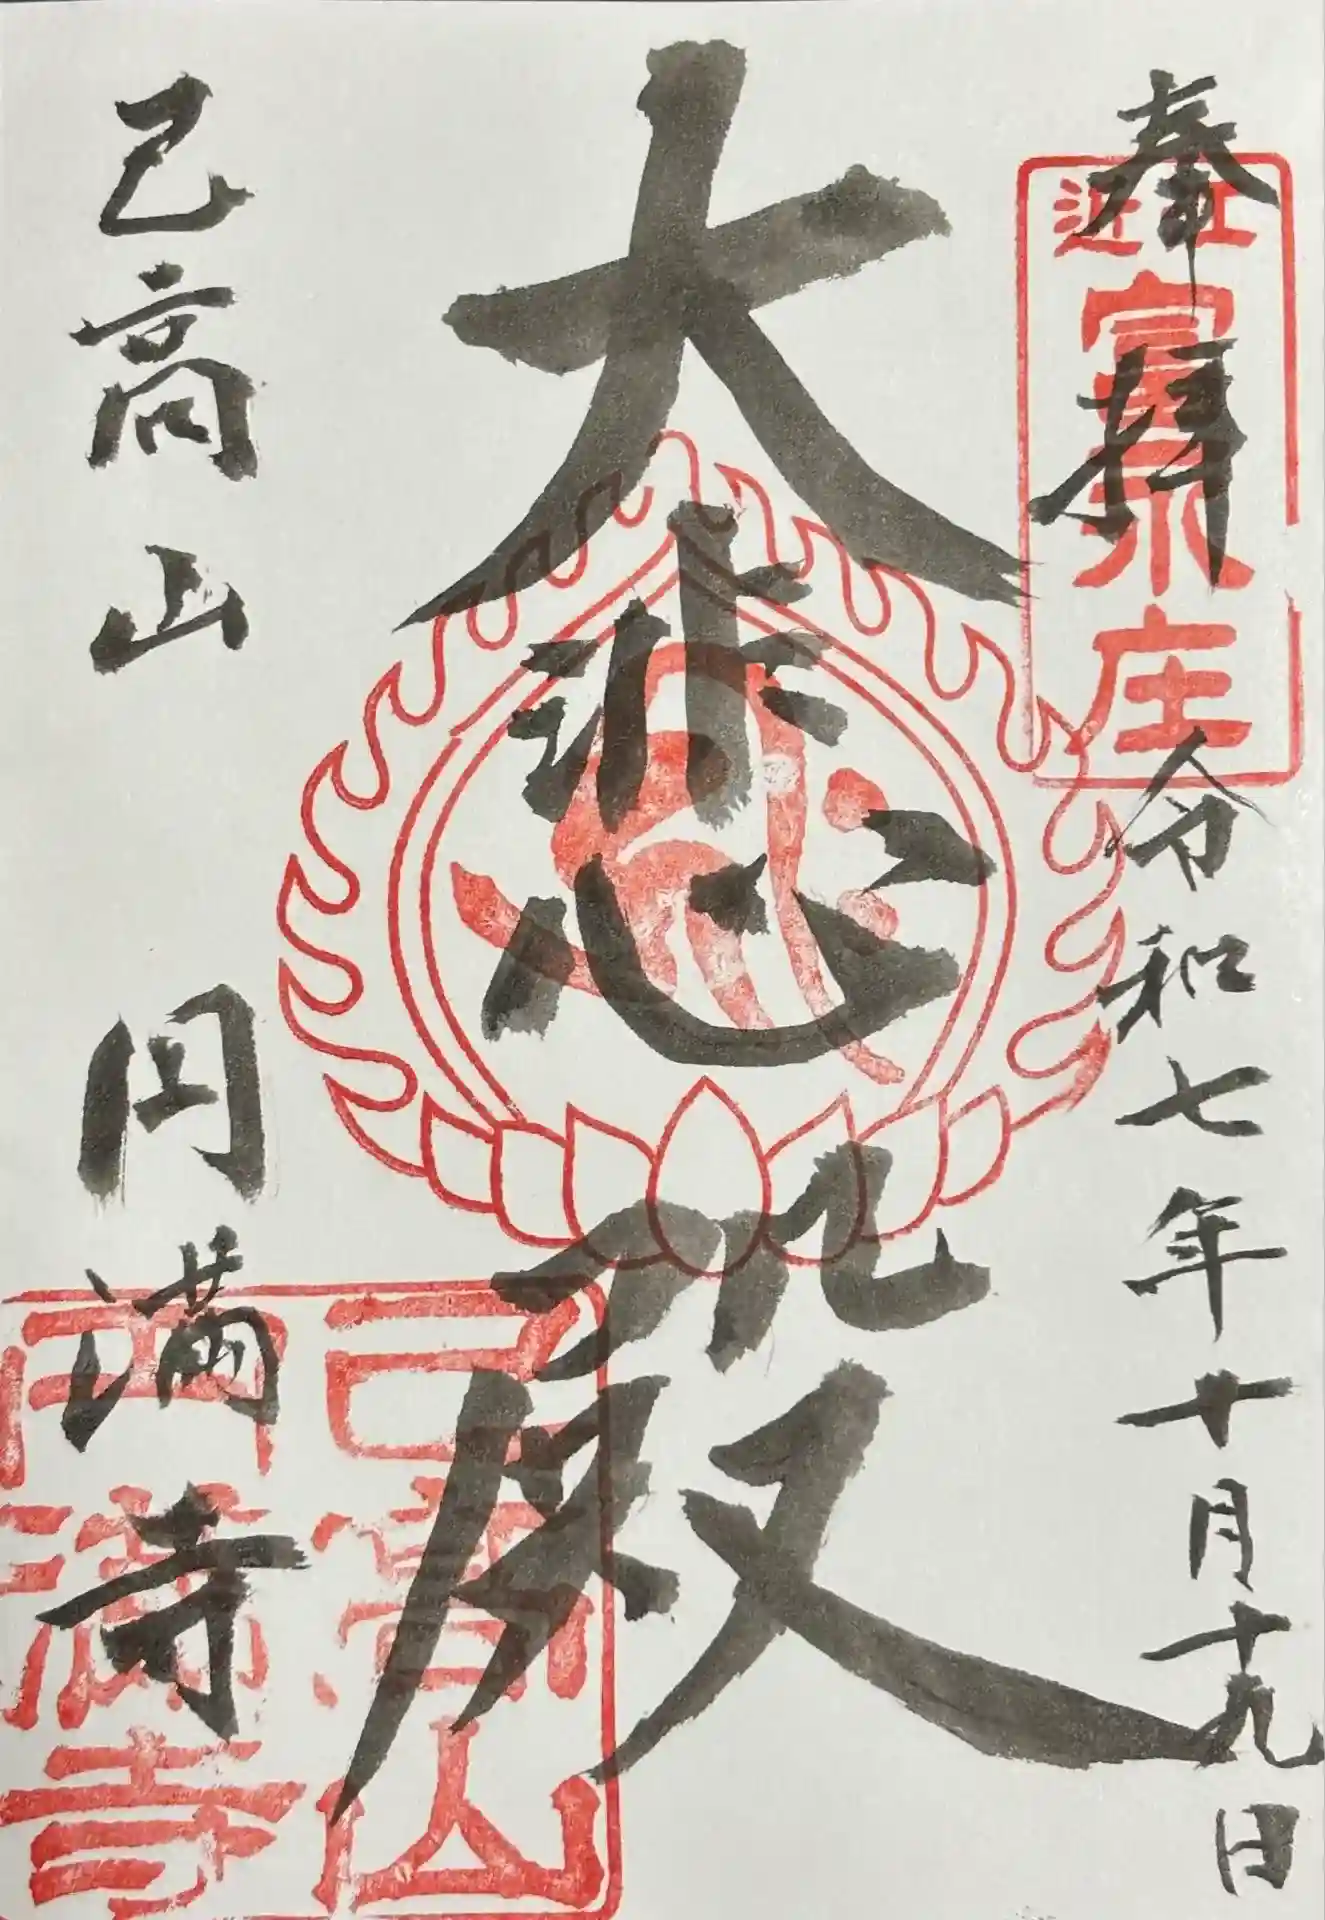 奉拝 令和七年十月十九日
近江
富永庄
大悲殿
己高山 円満寺
己高山
円満寺